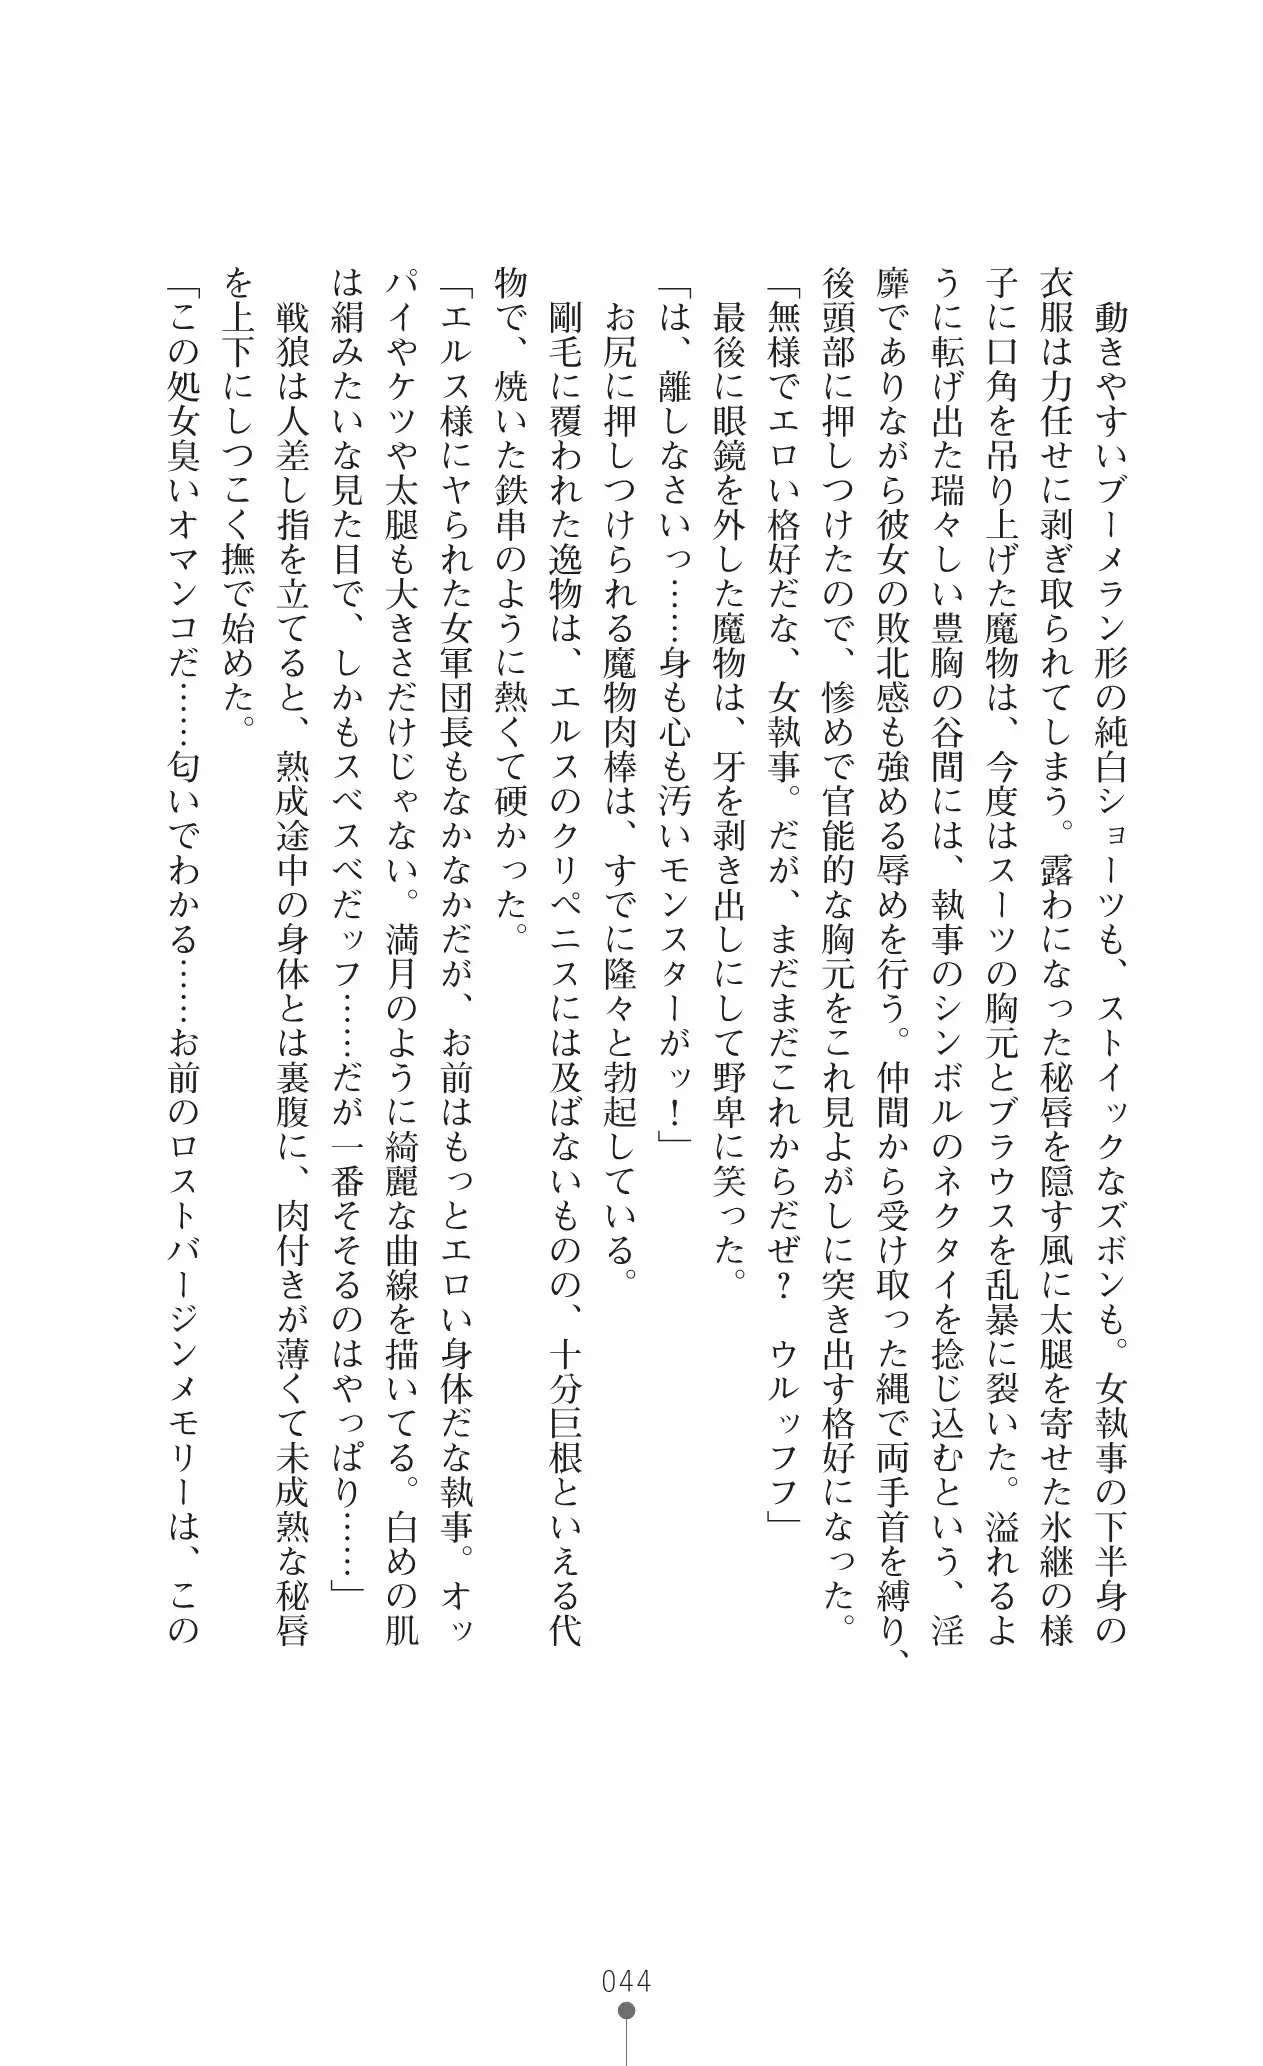 動きやすいブーメラン形の純白ショーツも、ストイックなズボンも。女執事の下半身の
衣服は力任せに剥ぎ取られてしまう。露わになった秘唇を隠す風に太腿を寄せた氷継の様
子に口角を吊り上げた魔物は、今度はスーツの胸元とブラウスを乱暴に裂いた。溢れるよ
うに転げ出た瑞々しい豊胸の谷間には、執事のシンボルのネクタイを捻じ込むという、淫
靡でありながら彼女の敗北感も強める辱めを行う。仲間から受け取った縄で両手首を縛り、
後頭部に押しつけたので、惨めで官能的な胸元をこれ見よがしに突き出す格好になった。
「無様でエロい格好だな、女執事。だが、まだまだこれからだぜ？　ウルッフフ」
最後に眼鏡を外した魔物は、牙を剥き出しにして野卑に笑った。
「は、離しなさいっ……身も心も汚いモンスターがッ！」
お尻に押しつけられる魔物肉棒は、すでに隆々と勃起している。
剛毛に覆われた逸物は、エルスのクリペニスには及ばないものの、十分巨根といえる代
物で、焼いた鉄串のように熱くて硬かった。
「エルス様にヤられた女軍団長もなかなかだが、お前はもっとエロい身体だな執事。オッ
パイやケツや太腿も大きさだけじゃない。満月のように綺麗な曲線を描いてる。白めの肌
は絹みたいな見た目で、しかもスベスベだッフ……だが一番そそるのはやっぱり……」
戦狼は人差し指を立てると、熟成途中の身体とは裏腹に、肉付きが薄くて未成熟な秘唇
を上下にしつこく撫で始めた。
「この処女臭いオマンコだ……匂いでわかる……お前のロストバージンメモリーは、この
044